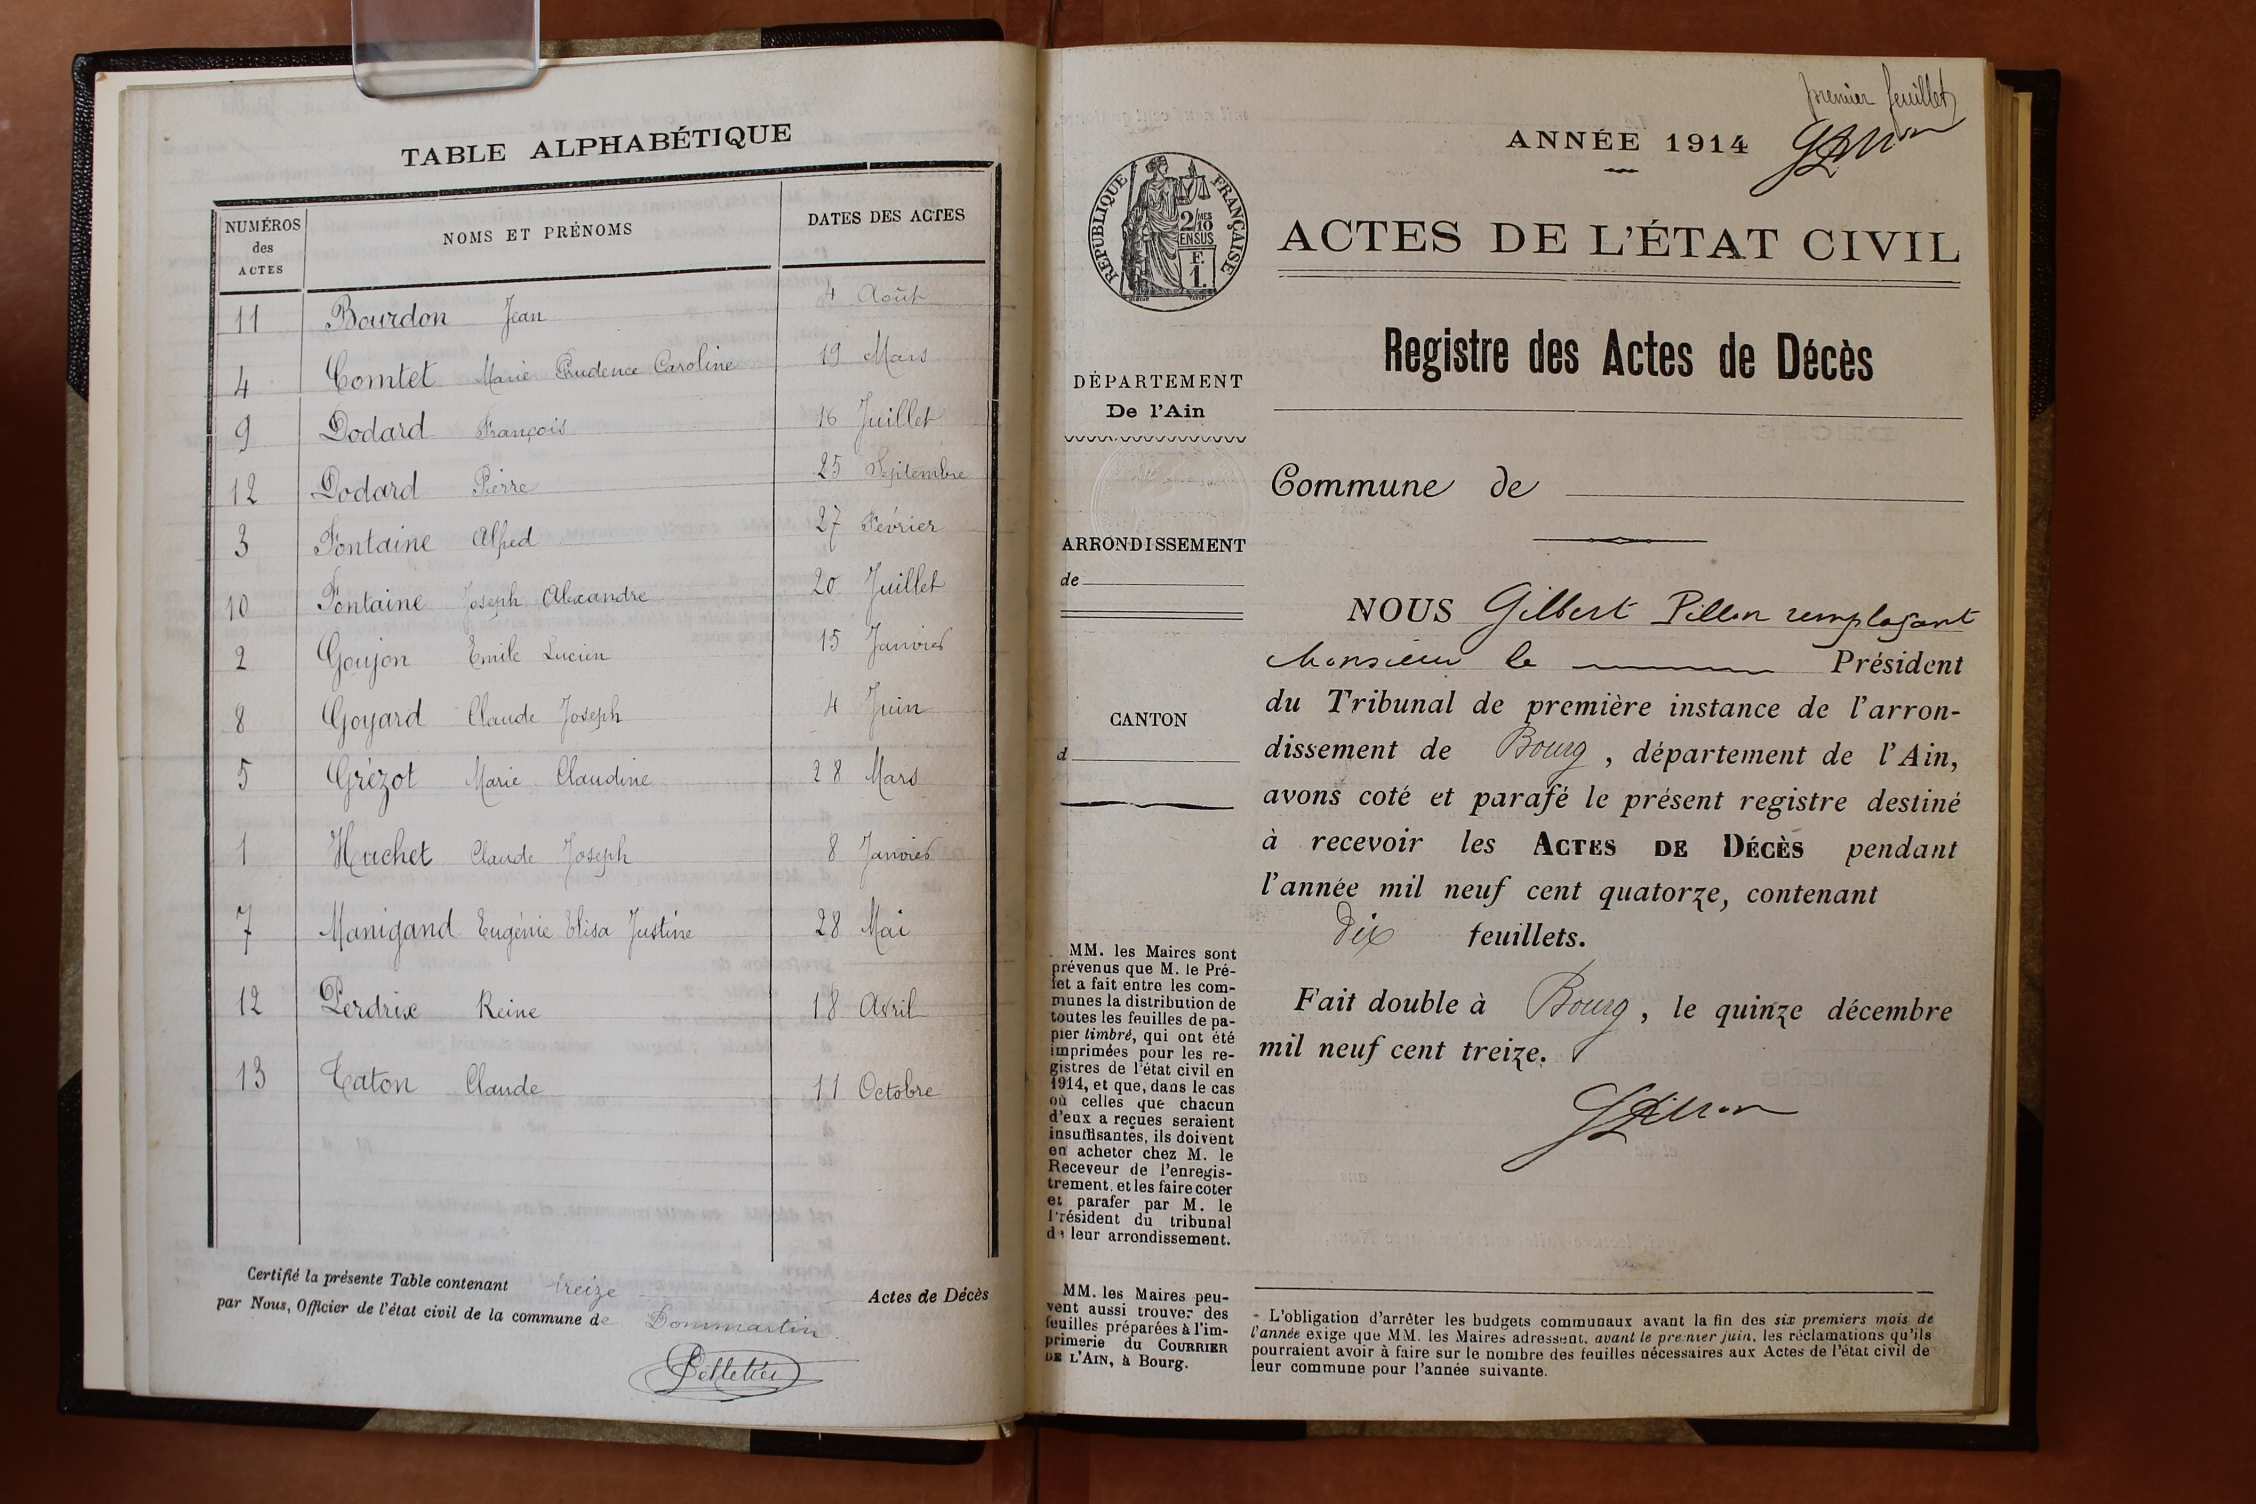 TABLE ALPHABÉTIQUE
NUMÉROS
des
ACTES
NOMS ET PRÉNOMS
DATES DES ACTES
11 Bourdon Jean 4 Août
4 Comtet Marie Prudence Caroline 19 Mars
9 Dodard François 16 Juillet
12 Dodard Pierre 25 Septembre
3 Fontaine Alfred 27 Février
10 Fontaine Joseph Alexandre 20 Juillet
2 Goujon Emile Lucien 15 Janvier
8 Goyard Claude Joseph 4 Juin
5 Grézot Marie Claudine 28 Mars
1 Huchet Claude Joseph 8 Janvier
7 Manigand Eugénie Elisa Justine 28 Mai
12 Perdrix Reine 18 Avril
13 Caton Claude 11 Octobre
Certifié la présente Table contenant treize Actes de Décès
par Nous, Officier de l'état civil de la commune de Dommartin
Pelletier
premier feuillet
ANNÉE 1914
GPillon
RÉPUBLIQUE FRANÇAISE
2/10 MES
EN SUS
F.
1.
ACTES DE L'ÉTAT CIVIL
Registre des Actes de Décès
DÉPARTEMENT
De l'Ain
Commune de
ARRONDISSEMENT
de
CANTON
d
NOUS Gilbert Pillon remplaçant
Monsieur le Président
du Tribunal de première instance de l'arron-
dissement de Bourg, département de l'Ain,
avons coté et parafé le présent registre destiné
à recevoir les ACTES DE DÉCÈS pendant
l'année mil neuf cent quatorze, contenant
Dix feuillets.
Fait double à Bourg, le quinze décembre
mil neuf cent treize.
GPillon
MM. les Maires sont
prévenus que M. le Pré-
fet a fait entre les com-
munes la distribution de
toutes les feuilles de pa-
pier timbré, qui ont été
imprimées pour les re-
gistres de l'état civil en
1914, et que, dans le cas
où celles que chacun
d'eux a reçues seraient
insuffisantes, ils doivent
en acheter chez M. le
Receveur de l'enregis-
trement, et les faire coter
et parafer par M. le
Président du tribunal
de leur arrondissement.
MM. les Maires peu-
vent aussi trouver des
feuilles préparées à l'im-
primerie du COURRIER
DE L'AIN, à Bourg.
- L'obligation d'arrêter les budgets communaux avant la fin des six premiers mois de
l'année exige que MM. les Maires adressent, avant le premier juin, les réclamations qu'ils
pourraient avoir à faire sur le nombre des feuilles nécessaires aux Actes de l'état civil de
leur commune pour l'année suivante.